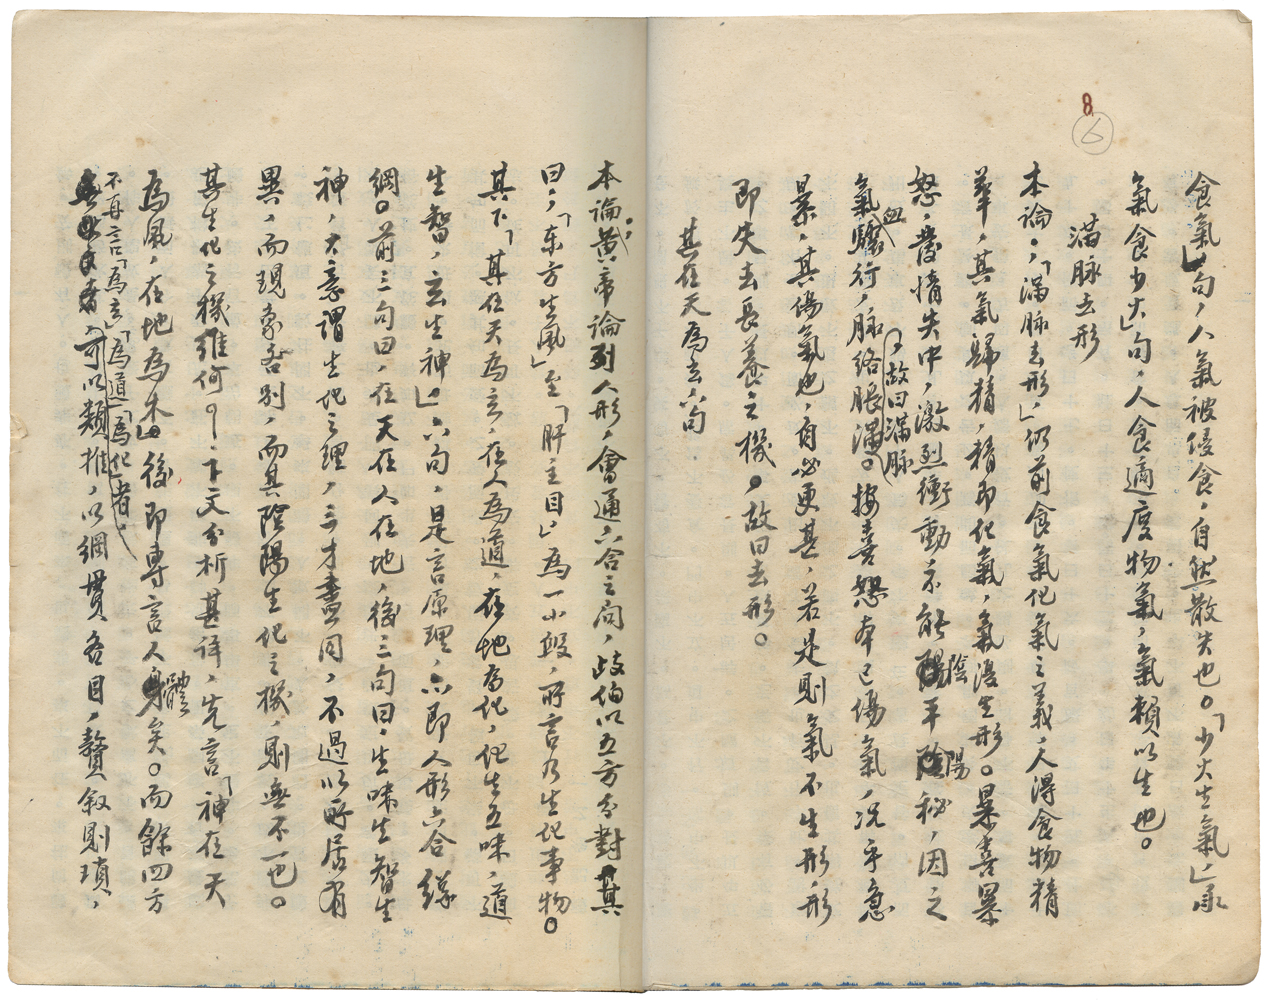 8
6
食氣」句，人氣被侵食，自然散失也。「少火生氣」承
氣食少火」句，人食適度物氣，氣賴以生也。
滿脉去形
本論，「滿脉去形」，仍前食氣化氣之義，人得食物精
華，其氣歸精，精即化氣，氣復生形。暴喜暴
怒，發情失中，激烈衝動，不能陰平陽秘，因之
氣血驟行，脉絡脹滿。故曰滿脉。按喜怒本已傷氣，况乎急
暴，其傷氣也，自必更甚，若是則氣不生形，形
即失去長養之機。故曰去形。
其在天為玄六句
本論黃帝論列人形，會通六合之问，歧伯以五方分對其
曰，「东方生風」至「肝主目」為一小段，所言乃生化事物。
其下「其在天為玄，在人為道，在地為化，化生五味，道
生智，玄生神」。六句，是言原理，亦即人形六合緣
綱。前三句曰，在天在人在地，後三句曰，生味生智生
神，大意謂生化之理，三才盡同，不過以所居有
異，而現象各别，而其陰陽生化之機，則無不一也。
其生化之機維何？下文分析甚详，先言「神在天
為風，在地為木」後即專言人體矣。而餘四方
不再言「為玄」「為道」「為化」者，可以類推，以綱貫各目，贅叙則瑣，